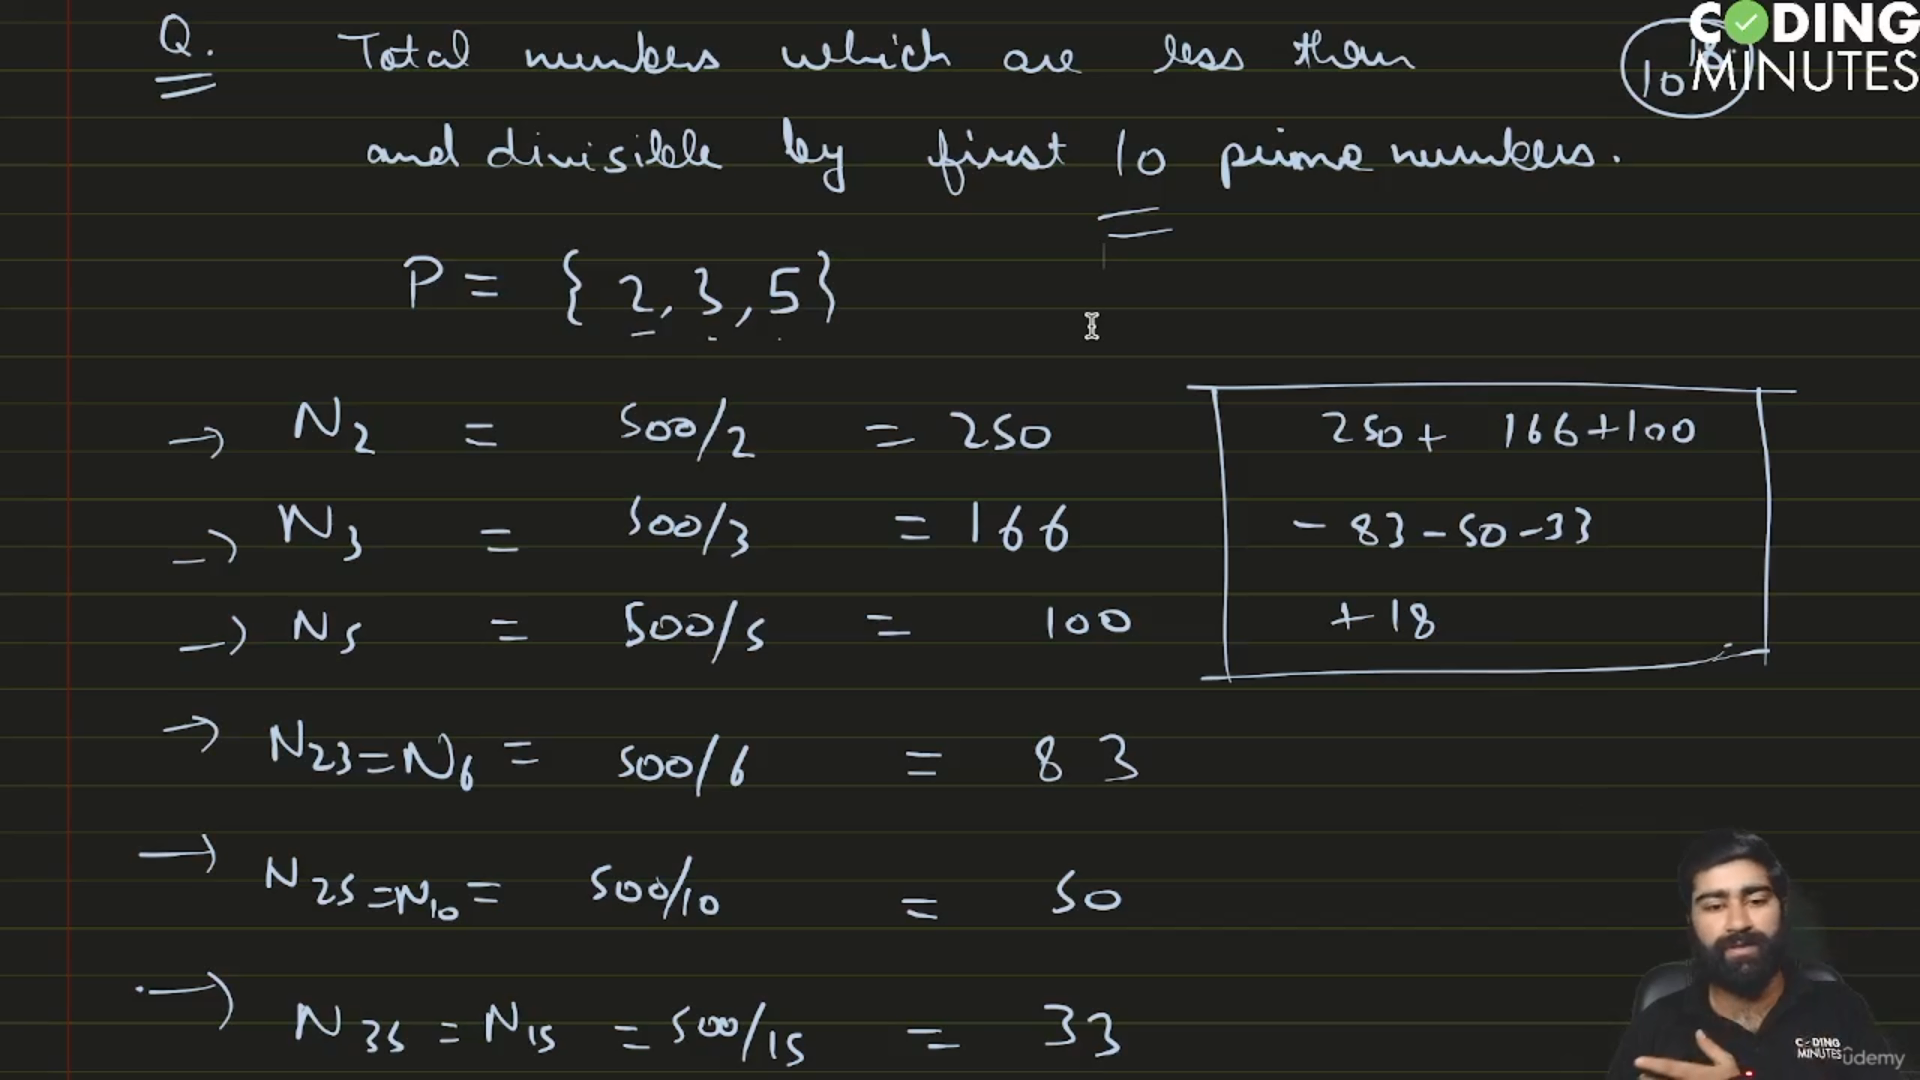 Q. Total numbers which are less than 10^18
and divisible by first 10 prime numbers.
P = { 2, 3, 5 }
→ N2 = 500/2 = 250
→ N3 = 500/3 = 166
→ N5 = 500/5 = 100
→ N23 = N6 = 500/6 = 83
→ N25 = N10 = 500/10 = 50
→ N35 = N15 = 500/15 = 33
250 + 166 + 100
- 83 - 50 - 33
+ 18
CODING
MINUTES
CODING
MINUTES
ûdemy